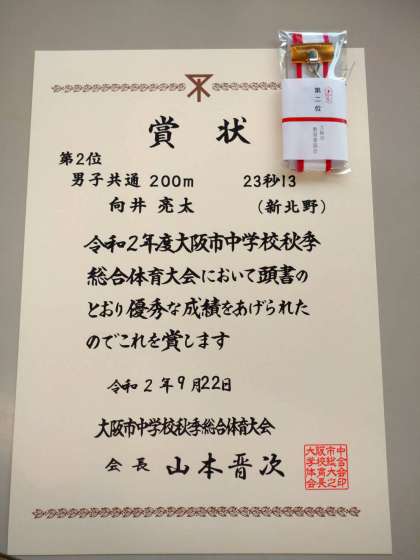 賞状
第二位
第2位
男子共通 200m 23秒13
向井 亮太 (新北野)
令和2年度大阪市中学校秋季
総合体育大会において頭書の
とおり優秀な成績をあげられた
のでこれを賞します
令和2年9月22日
大阪市中学校秋季総合体育大会
会長 山本晋次